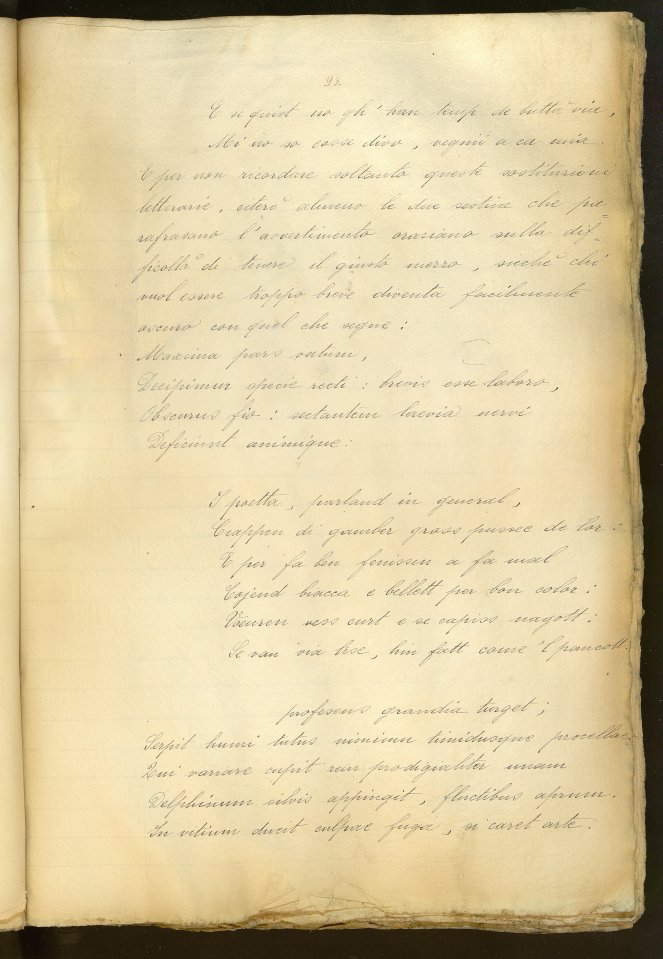 93
E se quist no gh' han temp de buttà via,
Mi no so cossa divv, vegnii a ca mia.
E per non ricordare soltanto queste sostituzioni
letterarie, citerò almeno le due sestine che pa=
rafrasano l'avvertimento oraziano sulla dif=
ficoltà di tenere il giusto mezzo, sicchè chi
vuol essere troppo breve diventa facilmente
oscuro con quel che segue:
Maxima pars vatum,
Decipimur specie recti: brevis esse laboro,
Obscurus fio: sectantem laevia nervi
Deficiunt animique:
I poetta, parland in general,
Ciappen di gamber gross pussee de lor:
E per fa ben fenissen a fa mal
Tojend biacca e bellett per bon color:
Vœuren vess curt e se capiss nagott:
Se van via lise, hin fatt come 'l pancott.
professus grandia turget;
Serpit humi tutus nimium timidusque procellae:
Qui variare cupit rem prodigialiter unam
Delphinum silvis appingit, fluctibus aprum.
In vitium ducit culpae fuga, si caret arte.